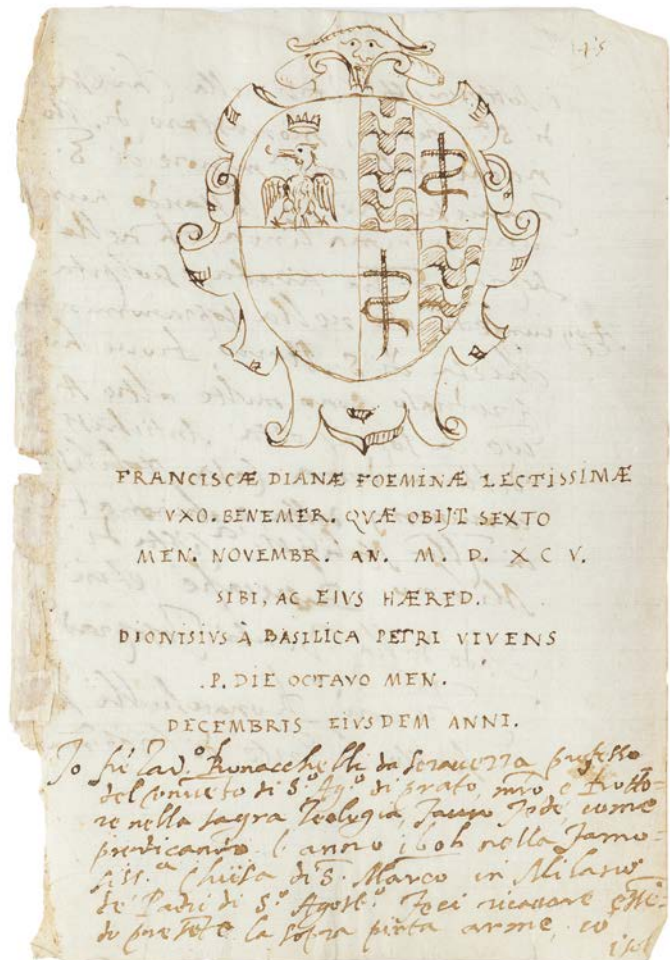 145
FRANCISCÆ DIANÆ FOEMINÆ LECTISSIMÆ
VXO. BENEMER. QVÆ OBIJT SEXTO
MEN. NOVEMBR. AN. M. D. X C V.
SIBI, AC EIVS HÆRED.
DIONISIVS À BASILICA PETRI VIVENS
.P. DIE OCTAVO MEN.
DECEMBRIS EIVSDEM ANNI.
Jo frè Bonacchelli da Seravezza professo
del conveto di S.º Ag.º di prato, mro e Dotto
re nella sagra Teologia, faccio fede, come
predicando l'anno 1606 nella famo-
siss.ª Chiesa di S. Marco in Milano
de Padri di S.º Agost.º feci ricavare esse-
do presete la sopra picta arme, co